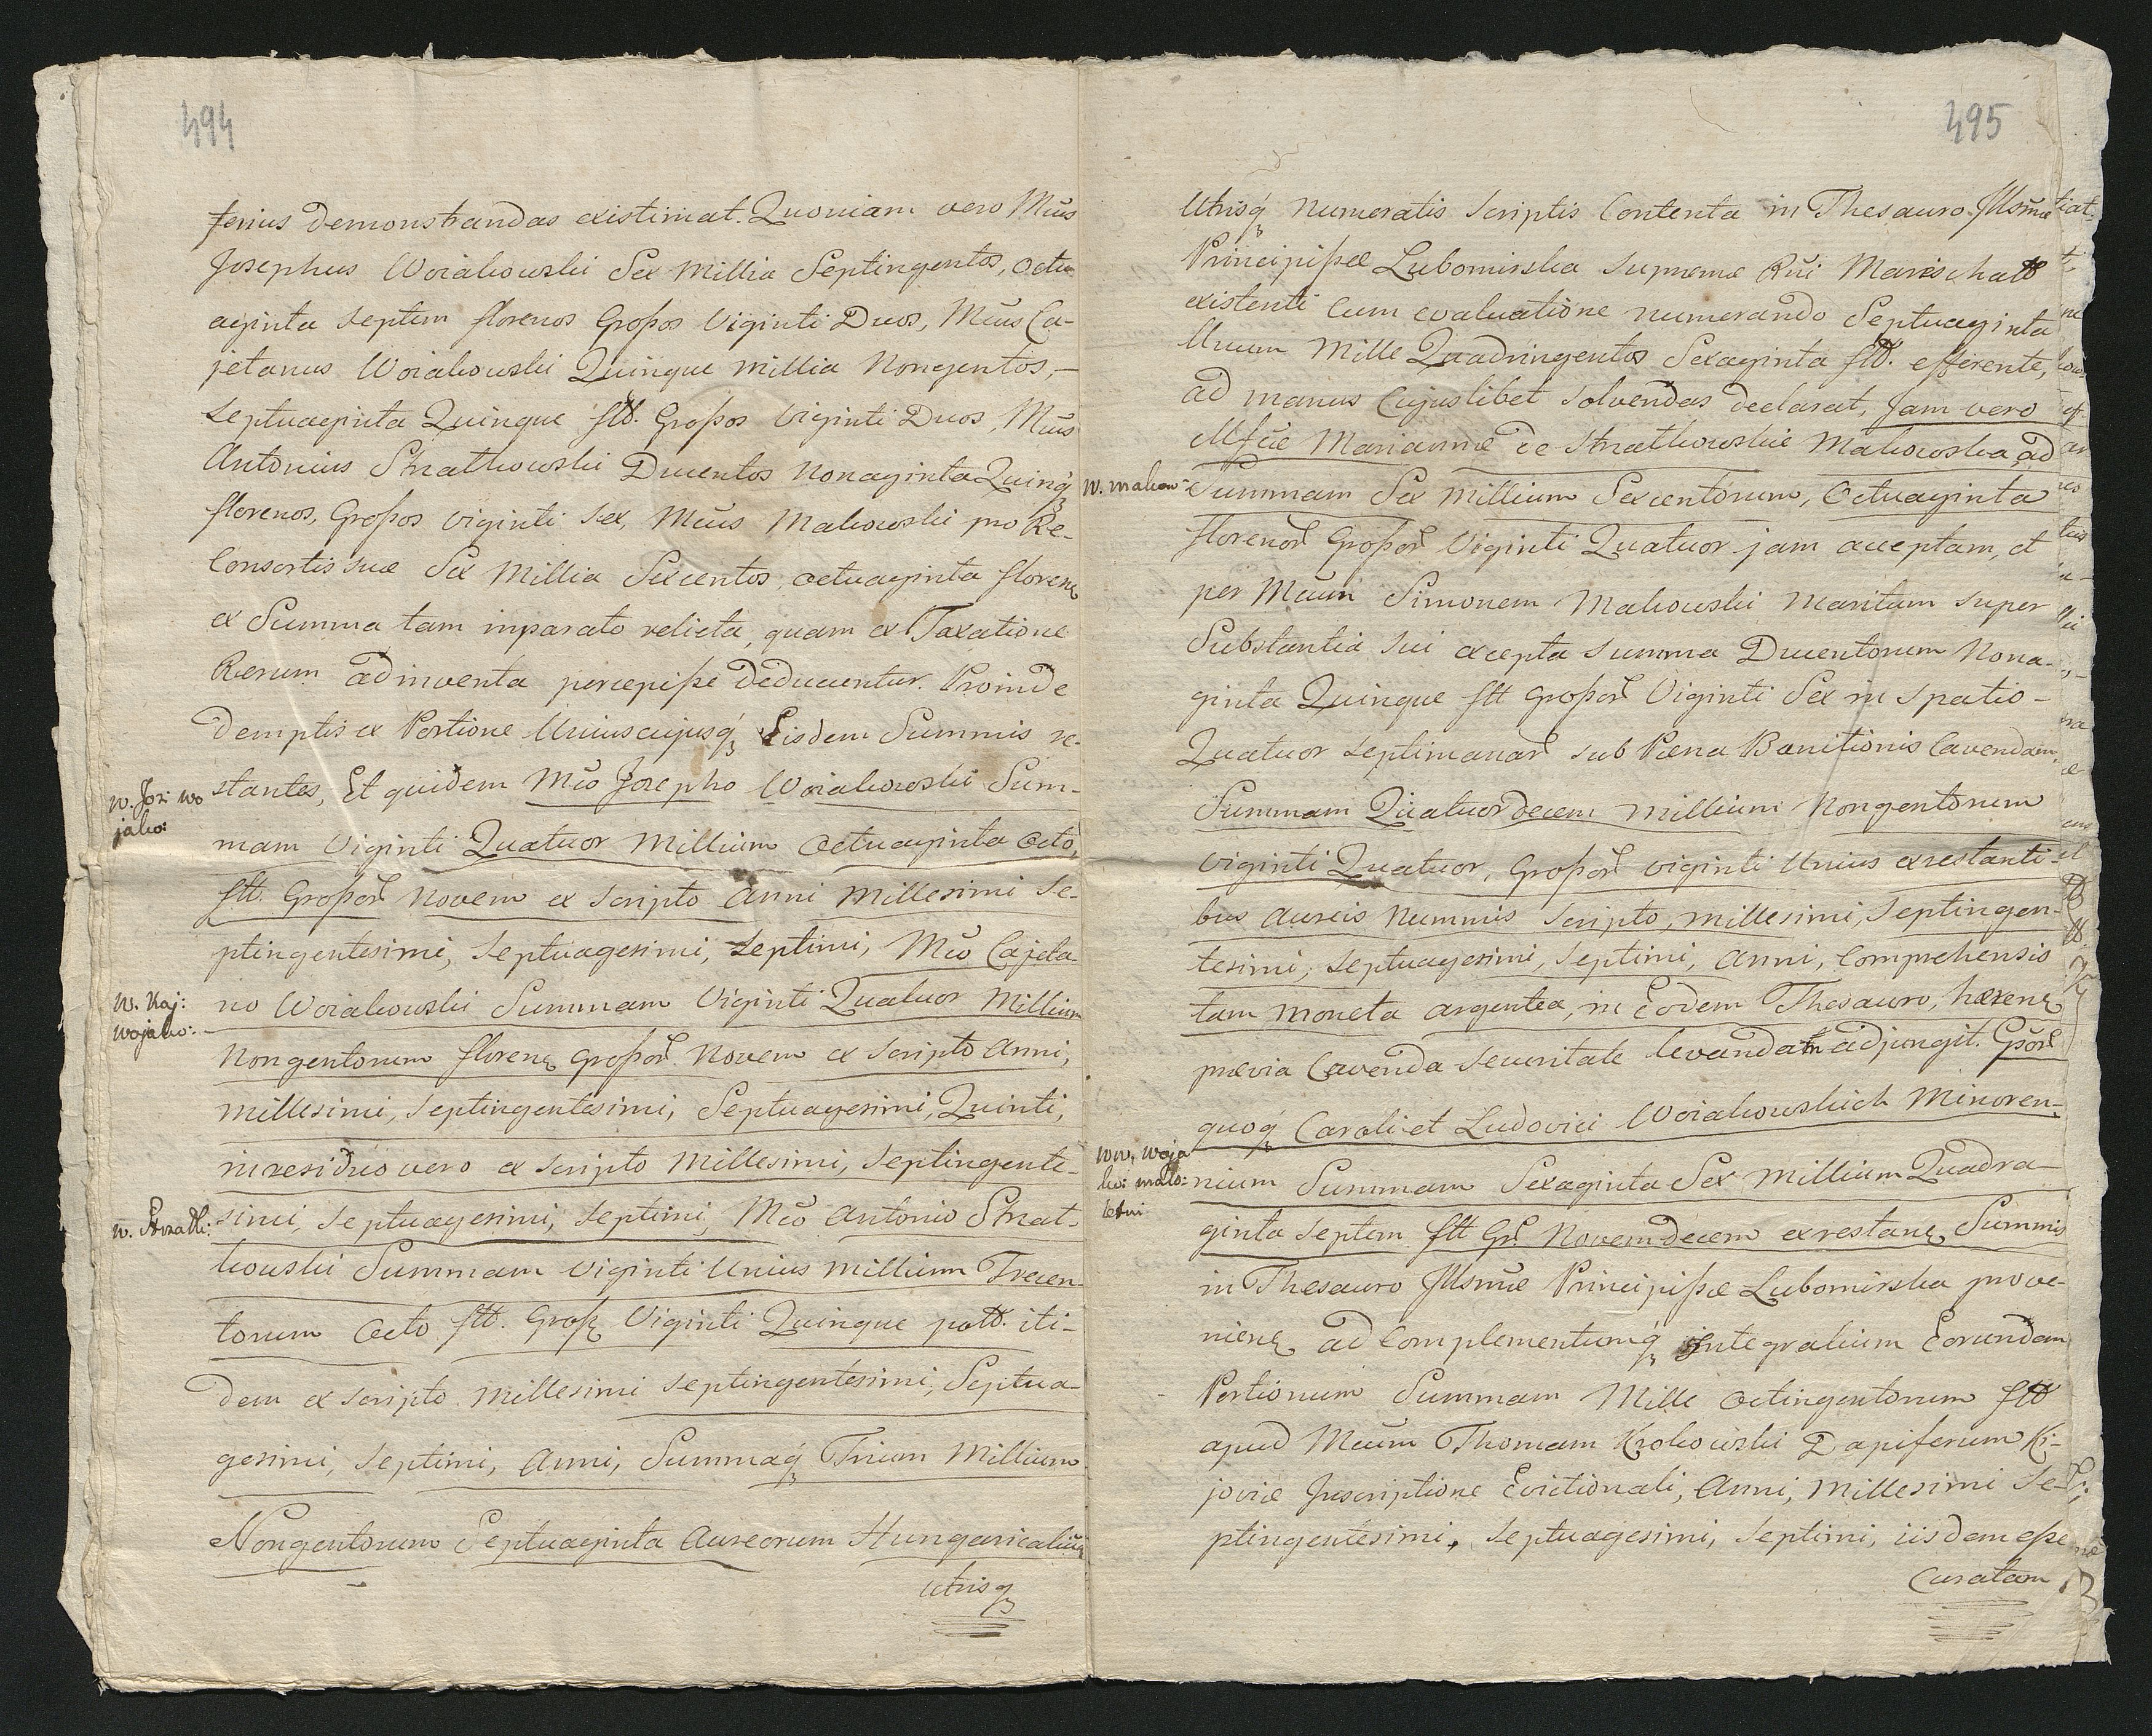 494
ferius demonstrandas existimat. Quoniam vero Mcūs
Josephus Woiakowski Sex Millia Septingentos, octu-
aginta Septem florenos Großos Viginti Duos, Mcūs Ca-
jetanus Woiakowski Quinque millia Nongentos,
Septuaginta Quinque fłł. Großos Viginti Duos, Mcūs
Antonius Strzałkowski Ducentos Nonaginta Quinq́ꝫ
florenos, Großos viginti Sex, Mcūs Makowski pro Re-
Consortis suæ Sex Millia Sexcentos, octuaginta floren
ex Summa tam inparato relicta, quam ex Taxatione
Rerum adinventa percepiße deducuntur. Proinde
demptis ex Portione Uniuscujusq́ꝫ Eisdem Summis re-
W. Joz: Wo
jako:
stantes, Et quidem Mcō Josepho Woiakowski Sum-
mam Viginti Quatuor Millium Octuaginta Octo,
fłł. Großor̄ Novem ex Scripto Anni Millesimi Se-
ptingentesimi, Septuagesimi, Septimi, Mcō Cajeta-
W. Kaj:
Wojako:
no Woiakowski Summam Viginti Quatuor Millium
Nongentorum floren Großor̄ Novem ex Scripto Anni,
Millesimi, Septingentesimi, Septuagesimi, Quinti,
in residuo vero ex Scripto Millesimi, Septingente-
W. Strzałk:
simi, Septuagesimi, Septimi, Mcō Antonio Strzał-
kowski Summam Viginti Unius Millium Trecen-
torum Octo fłł. Groß Viginti Quinque połł. iti-
dem ex Scripto Millesimi Septingentesimi, Septua-
gesimi, Septimi, Anni, Summaq́ꝫ Trium Millium
Nongentorum Septuaginta Aureorum Hungaricaliū
Utrisqꝫ
495
Utrisq́ꝫ Numeratis Scriptis Contenta in Thesauro Jllsmæ
Principißæ Lubomirska Supremæ Rni Marischałł
existenti Cum evaluatione numerando Septuaginta
Unum Mille Quadringentos Sexaginta fłł. efferente,
ad manus Cujuslibet solvendas declarat, Jam vero
Mfcæ Mariannæ de Strzałkowskie Makowska, ad
W. Makow:
Summam Sex Millium Sexcentorum, Octuaginta
florenor̄ Großor̄ Viginti Quatuor jam acceptam, et
per Mcum Simonem Makowski Maritum super
Substantia sui excepta Summa Ducentorum Nona-
ginta Quinque fłł Großor̄ Viginti Sex in Spatio
Quatuor Septimanar̄ sub Pæna Banitionis Cavendam,
Summam Quatuordecem Millium Nongentorum
Viginti Quatuor, Großor̄ viginti Unius exrestanti-
bus Aureis Nummis Scripto, Millesimi, Septingen-
tesimi, Septuagesimi, Septimi, Anni, Comprehensis
tam moneta argentea, in Eodem Thesauro,
prævia Cavenda Securitate levandam adjungit.
quoq́ꝫ Caroli et Ludovici Woiakowskich Minoren-
WW. Woja
ko: mało:
letni
nium Summam Sexaginta Sex Millium Quadra-
ginta Septem fłł Gr. Novemdecem exrestan Summis
in Thesauro Jllsmæ Principißæ Lubomirska prove-
nien ad Complementumq́ꝫ Integralium Eorundem
Portionum Summam Mille Octingentorum fłł
apud Mcūm Thomam Krokowski Dapiferum Ki-
joviæ Jnscriptione Evictionali, Anni, Millesimi Se-
ptingentesimi, Septuagesimi, Septimi, iisdem eße
Curatam